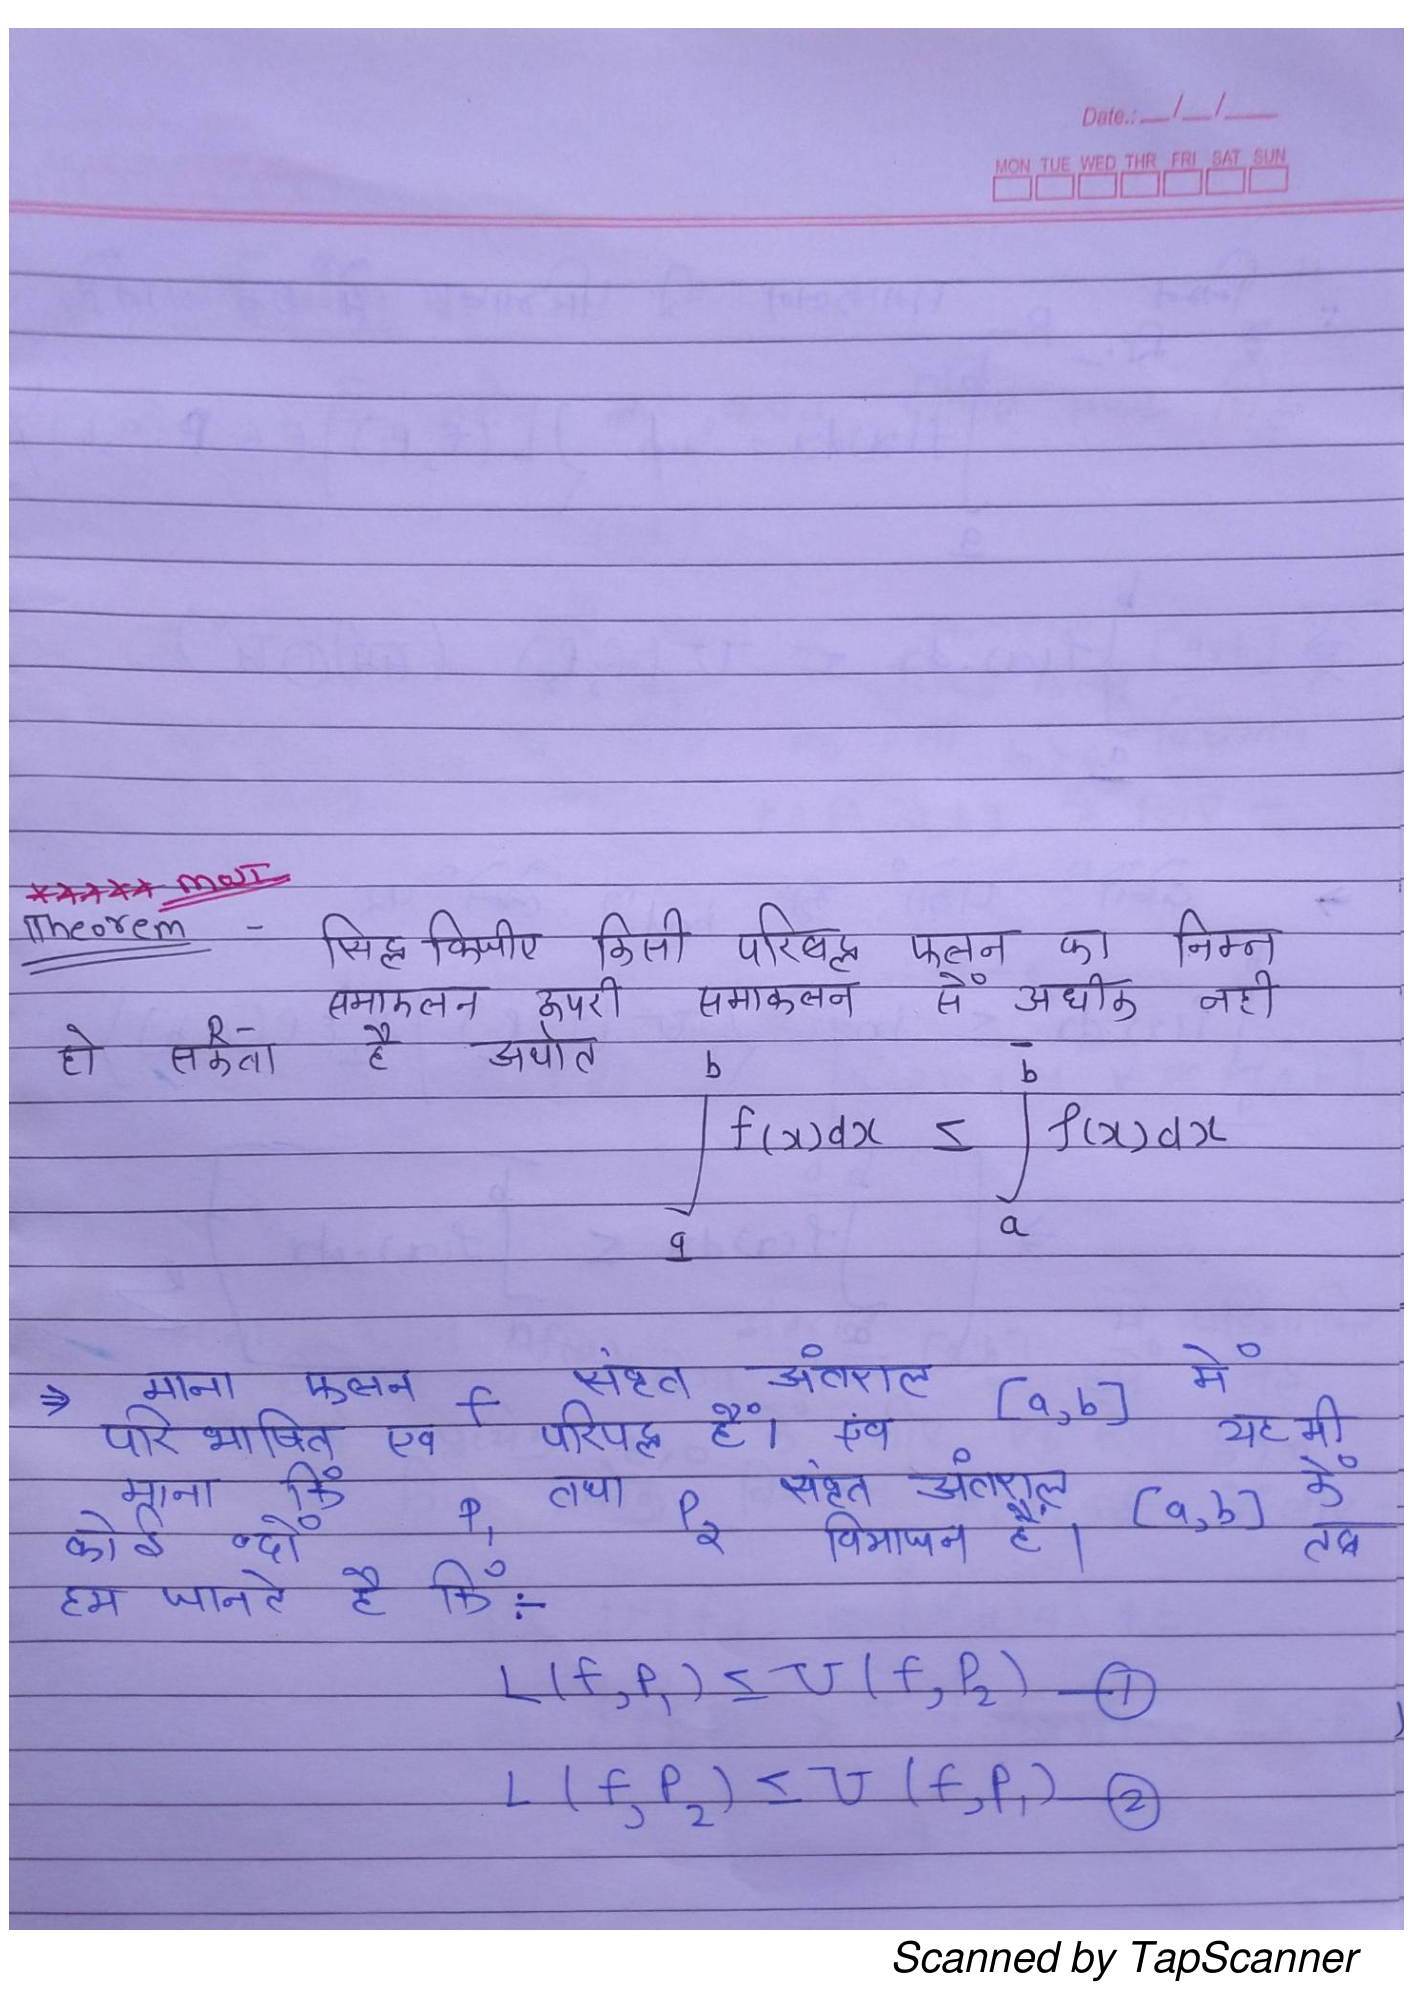 Date.: __/__/__
MON TUE WED THR FRI SAT SUN
***** most
Theorem - सिद्ध किजीए किसी परिबद्ध फलन का निम्न
समाकलन ऊपरी समाकलन सें अधीक नही
हो सकता R- है अर्थात
∫_a^b f(x)dx ≤ ∫_a^b̄ f(x)dx
⇒ माना फलन f संवृत अंतराल [a,b] में
परिभाषित एव परिपद्ध हैं। एंव यह भी
माना किं P₁ तथा P₂ संवृत अंतराल [a,b] कें
कोई दों विभाजन हैं। तब
हम जानते है किं :-
L(f,P₁) ≤ U(f,P₂) —①
L(f,P₂) ≤ U(f,P₁) —②
Scanned by TapScanner